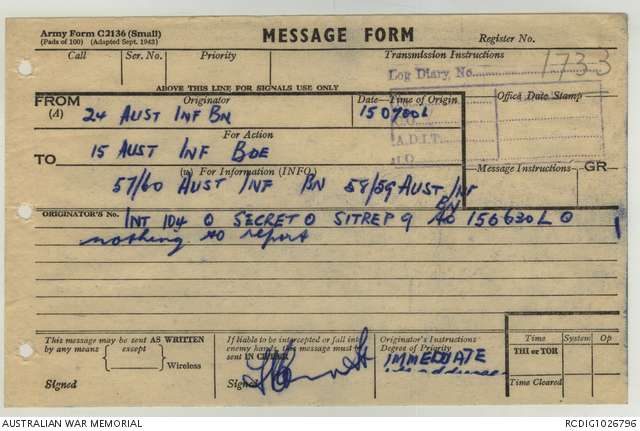 Army Form C2136 (Small)
(Pads of 100) (Adapted Sept. 1943)
MESSAGE FORM
Register No.
Call Ser. No. Priority Transmission Instructions
Log Diary, No. 1733
ABOVE THIS LINE FOR SIGNALS USE ONLY
FROM Originator Date—Time of Origin Office Date Stamp
(A) 24 AUST INF BN 150700L
A.D.I.T.
For Action
TO 15 AUST INF BDE
(w) For Information (INFO.) Message Instructions GR
57/60 AUST INF BN 58/59 AUST INF
BN
ORIGINATOR'S No. INT 104 O SECRET O SITREP 9 TO 150630L O
nothing to report
This message may be sent AS WRITTEN
by any means except Wireless
Signed
If liable to be intercepted or fall into
enemy hands, this message must be
sent IN CIPHER
Signed
Originator's Instructions
Degree of Priority
IMMEDIATE
Time System Op
THI or TOR
Time Cleared
AUSTRALIAN WAR MEMORIAL RCDIG1026796